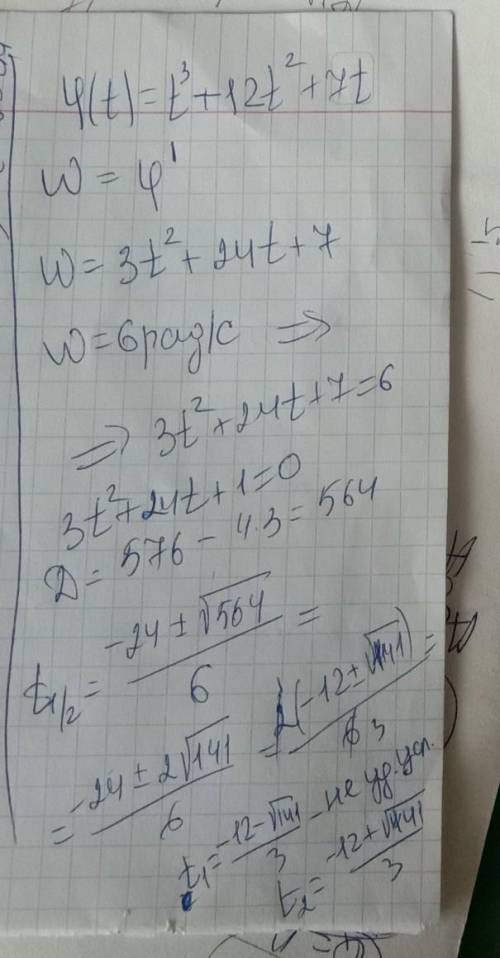 φ(t) = t³ + 12t² + 7t
W = φ'
W = 3t² + 24t + 7
W = 6 рад/с ⇒
⇒ 3t² + 24t + 7 = 6
3t² + 24t + 1 = 0
D = 576 - 4·3 = 564
t₁/₂ = (-24 ± √564)/6 =
= (-24 ± 2√141)/6 = 2(-12 ± √141)/6 3 =
t₁ = (-12 - √141)/3 - не уд. усл.
t₂ = (-12 + √141)/3